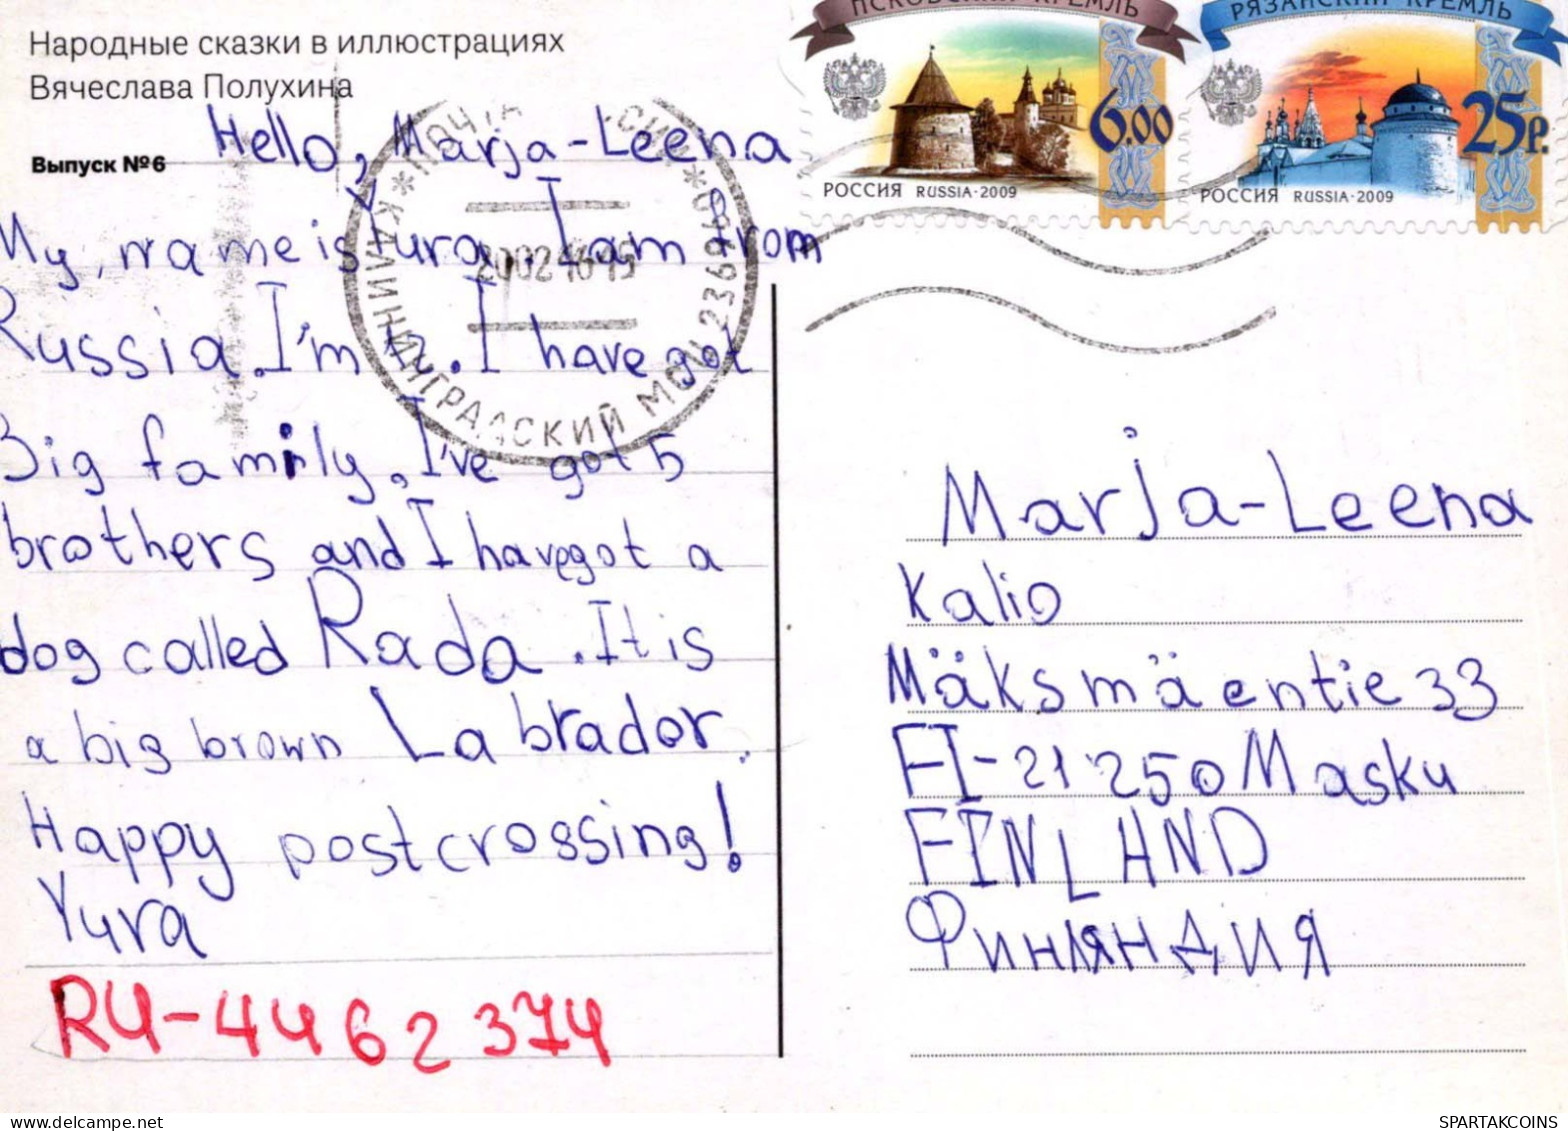 Народные сказки в иллюстрациях
Вячеслава Полухина
Выпуск №6
Hello, Marja-Leena
My, name is Yura, I am from
Russia. I'm . I have got
Big family. I've got 5
brothers and I have got a
dog called Rada. It is
a big brown Labrador.
Happy postcrossing!
Yura
RU-4462374
ПСКОВСКИЙ КРЕМЛЬ
6.00
РОССИЯ RUSSIA·2009
РЯЗАНСКИЙ КРЕМЛЬ
25р.
РОССИЯ RUSSIA·2009
КАЛИНИНГРАДСКИЙ МСЦ 236960
Marja-Leena
Kalio
Mäksmäentie 33
FI-21250 Masku
FINLAND
Финляндия
SPARTAKCOINS